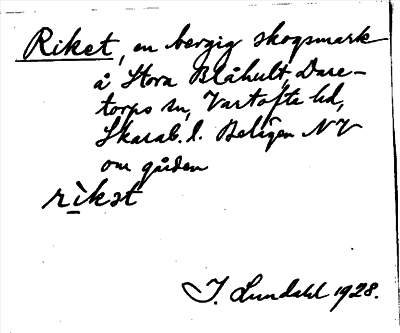 Riket, en bergig skogsmark
å Stora Blåhult, Dare-
torps sn, Vartofte hd,
Skarab. l. Belägen NV
om gården
rìkət
I. Lundahl 1928.